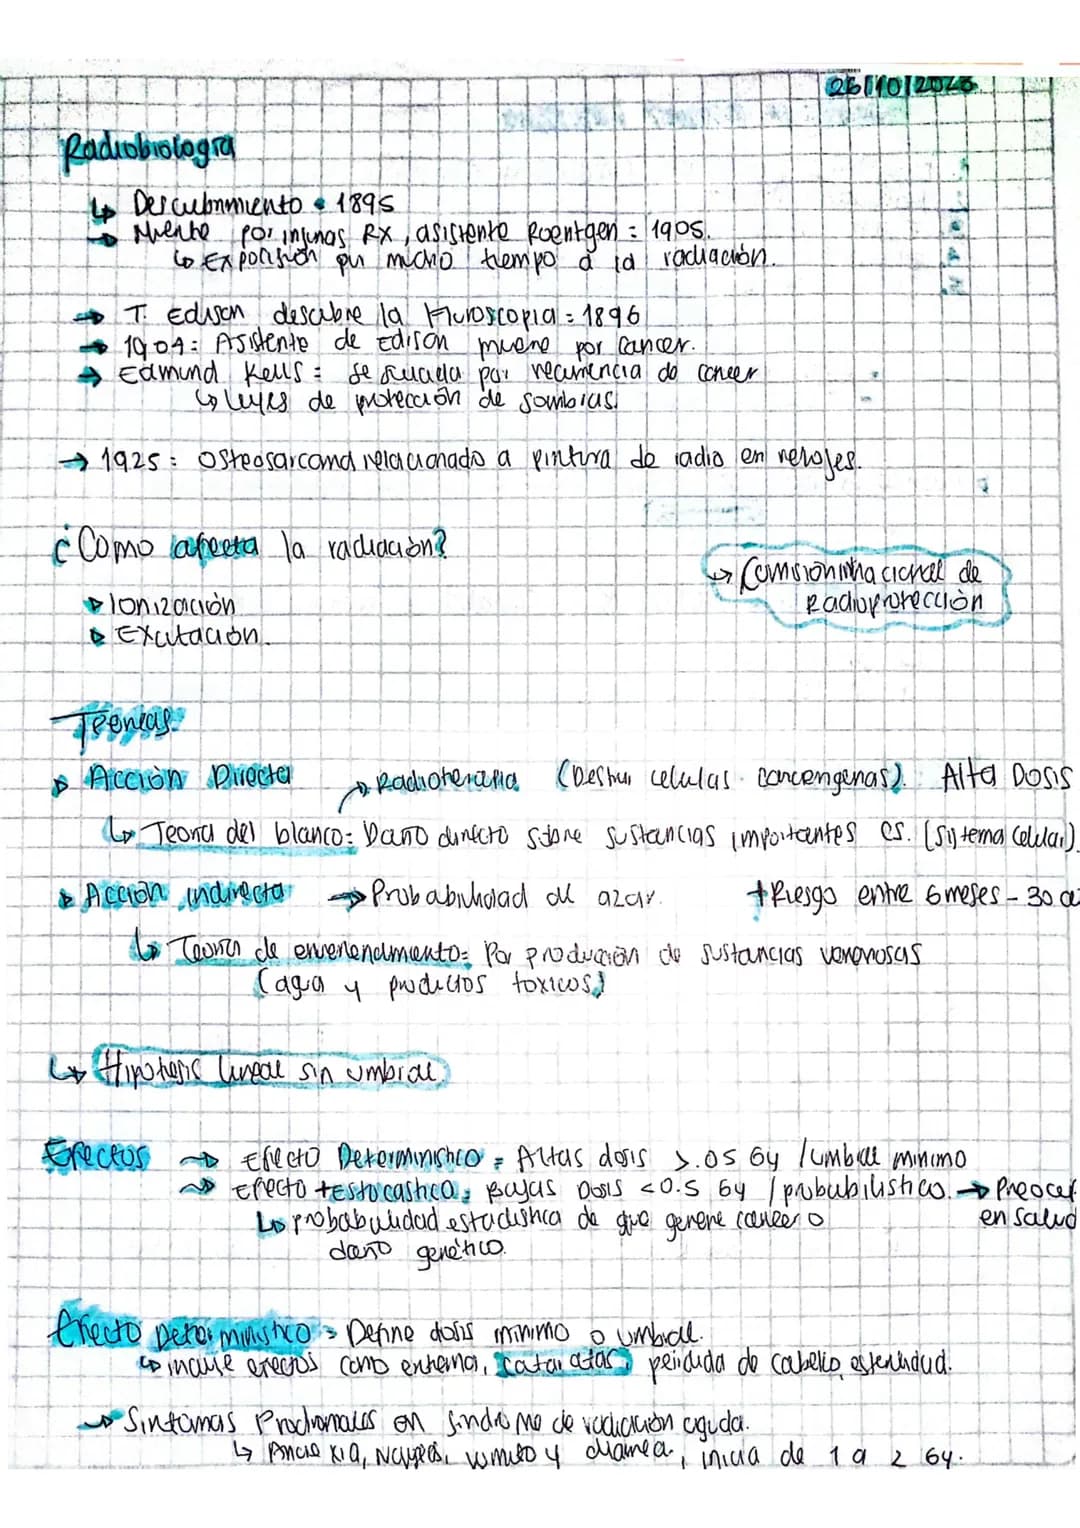 26/10/2023
Radiobiologia
↳ Descubrimiento • 1895
→ Muerte por injurias RX, asistente Roentgen = 1905.
↳ Exposición por mucho tiempo a la radiación.
→ T. Edison descubre la fluroscopia = 1896
→ 1904: Asistente de Edison muere por Cancer.
→ Edmund Kells = se suicida por recurrencia de cancer
↳ Leyes de protección de sombras.
→ 1925: Osteosarcoma relacionado a pintura de radio en relojes.
¿Como afecta la radiación?
→ Comisión nacional de
Radioprotección
▷ Ionización
▷ Exitación.
Teorias.
▷ Acción Directa → Radioterapia (Destruir celulas cancerigenas). Alta Dosis
↳ Teoria del blanco: Daño directo sobre sustancias importantes es. (Sistema Celular).
▷ Acción indirecta → Probabilidad al azar. + Riesgo entre 6 meses - 30 a
↳ Teoria de envenenamiento: Por producción de sustancias venenosas
(agua y productos toxicos)
↳ Hipotesis lineal sin umbral.
Efectos → Efecto Deterministico = Altas dosis >.05 Gy / umbral minimo
→ Efecto +Estocastica: Bajas Dosis <0.5 Gy / probabilistico. → Preocu
en salud
↳ probabilidad estadistica de que genere cancer o
daño genético.
Efecto Deterministico = Define dosis minimo o umbral.
↳ incluye efectos como eritema, cataratas, perdida de cabello, esterilidad.
→ Sintomas Prodromales en sindrome de radiación aguda.
↳ Anorexia, Nauseas, vomito y diarrea, inicia de 1 a 2 Gy.